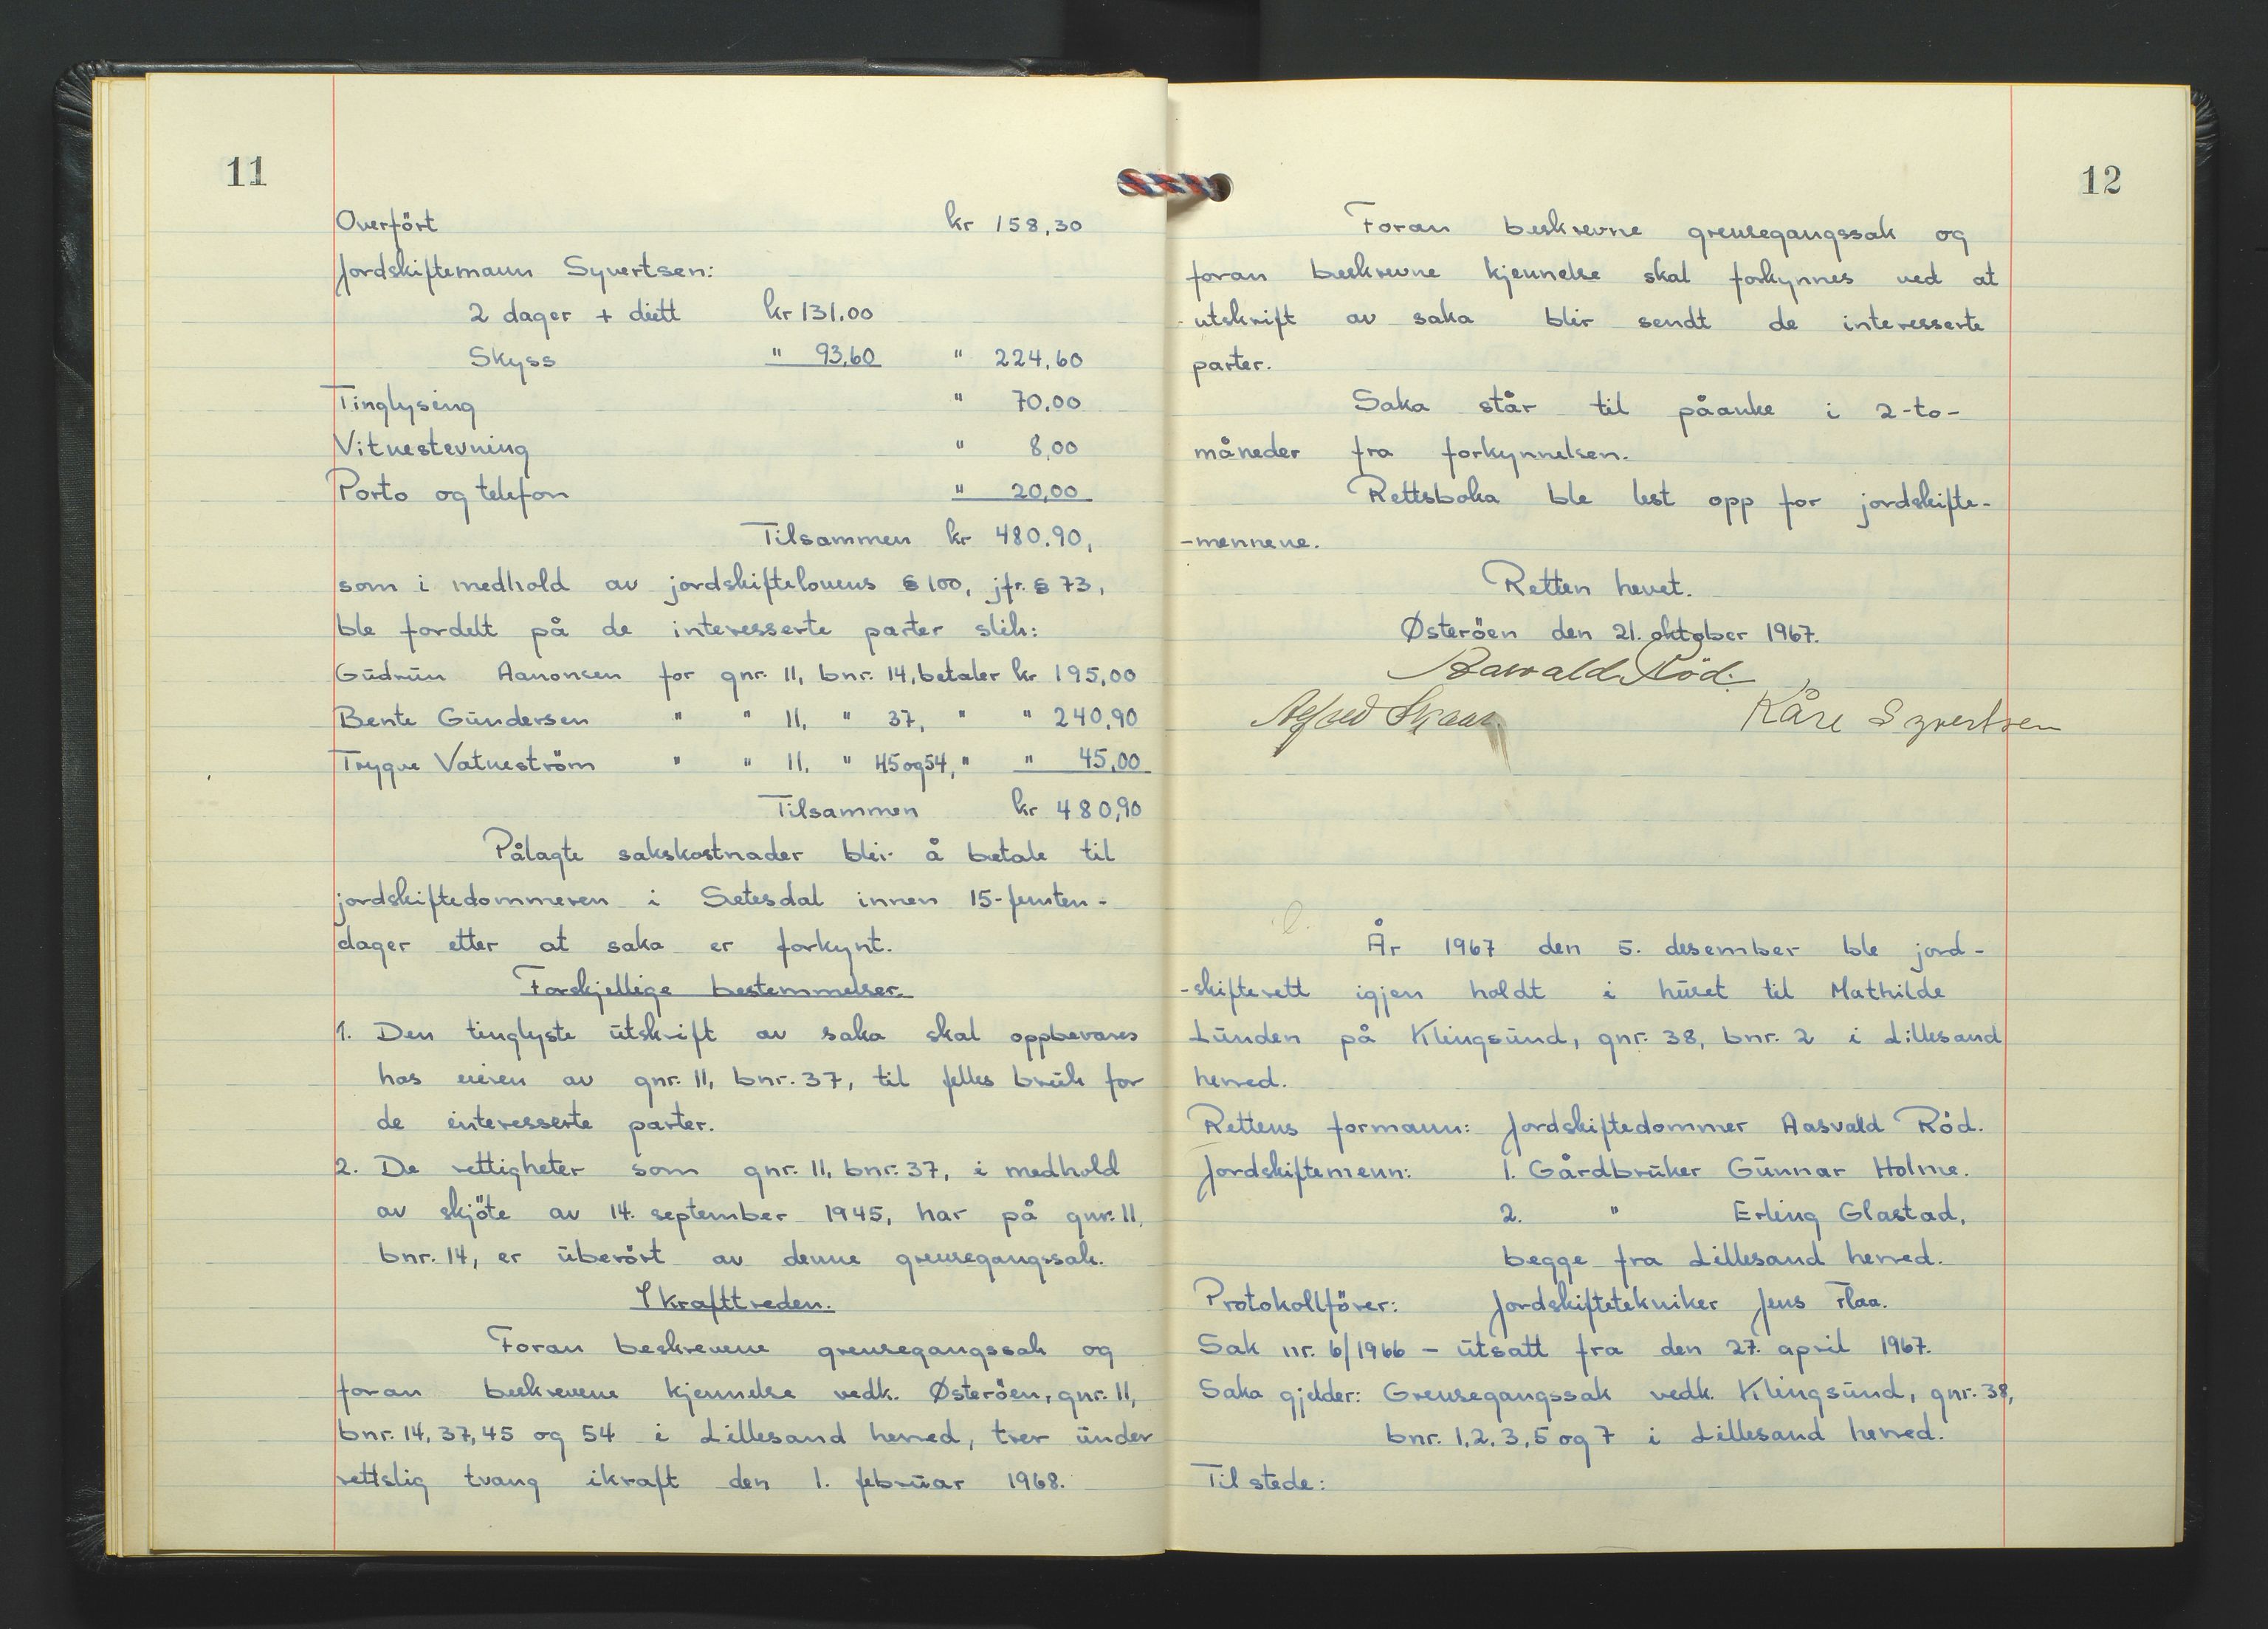 11
Overfört kr 158,30
Jordskiftemann Syvertsen:
2 dager + diett kr 131.00
Skyss " 93,60 " 224,60
Tinglysing " 70.00
Vitnestevning " 8,00
Porto og telefon " 20,00
Tilsammen kr 480.90,
som i medhold av jordskiftelovens § 100, jfr. § 73,
ble fordelt på de interesserte parter slik:
Gudrun Aanonsen for gnr. 11, bnr. 14, betaler kr 195,00
Bente Gundersen " " 11, " 37, " " 240,90
Trygve Vatneström " " 11, " 45 og 54, " " 45,00
Tilsammen kr 480,90
Pålagte sakskostnader blir å betale til
jordskiftedommeren i Setesdal innen 15-femten-
dager etter at saka er forkynt.
Forskjellige bestemmelser.
1. Den tinglyste utskrift av saka skal oppbevares
hos eieren av gnr. 11, bnr. 37, til felles bruk for
de interesserte parter.
2. De rettigheter som gnr. 11, bnr. 37, i medhold
av skjöte av 14. september 1945, har på gnr. 11,
bnr. 14, er uberört av denne grensegangssak.
Ikrafttreden.
Foran beskrevene grensegangssak og
foran beskrevene kjennelse vedk. Østeröen, gnr. 11,
bnr. 14, 37, 45 og 54 i Lillesand herred, trer under
rettslig tvang ikraft den 1. februar 1968.
12
Foran beskrevne grensegangssak og
foran beskrevne kjennelse skal forkynnes ved at
utskrift av saka blir sendt de interesserte
parter.
Saka står til påanke i 2-to-
måneder fra forkynnelsen.
Rettsboka ble lest opp for jordskifte-
-mennene.
Retten hevet.
Østeröen den 21. oktober 1967.
Aasvald Röd.
Alfred Skaar. Kåre Syvertsen
År 1967 den 5. desember ble jord-
-skifterett igjen holdt i huset til Mathilde
Lunden på Klingsund, gnr. 38, bnr. 2 i Lillesand
herred.
Rettens formann: Jordskiftedommer Aasvald Röd.
Jordskiftemenn: 1. Gårdbruker Gunnar Holme.
2. " Erling Glastad,
begge fra Lillesand herred.
Protokollförer: Jordskiftetekniker Jens Flaa.
Sak nr. 6/1966 – utsatt fra den 27. april 1967.
Saka gjelder: Grensegangssak vedk. Klingsund, gnr. 38,
bnr. 1, 2, 3, 5 og 7 i Lillesand herred.
Til stede: